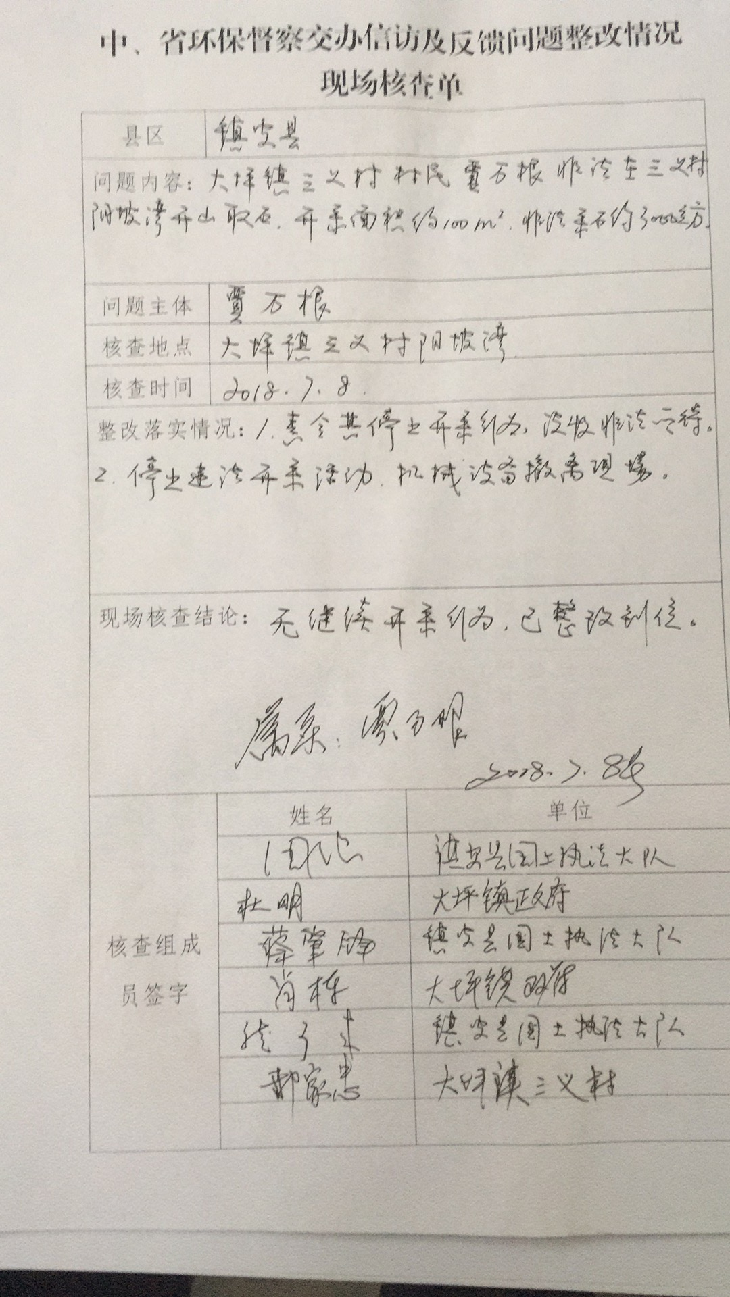 中、省环保督察交办信访及反馈问题整改情况
现场核查单
县区 镇安县
问题内容：大坪镇三义村村民贾万根非法在三义村
阳坡湾开山取石，开采面积约100m²，非法采石约3000立方
问题主体 贾万根
核查地点 大坪镇三义村阳坡湾
核查时间 2018.7.8.
整改落实情况：1.责令其停止开采行为，没收非法所得。
2.停止违法开采活动，机械设备撤离现场。
现场核查结论：无继续开采行为，已整改到位。
属实：贾万根
2018.7.8号
姓名 单位
镇安县国土执法大队
杜明 大坪镇政府
核查组成 蔡肇 镇安县国土执法大队
员签字 肖栋 大坪镇政府
镇安县国土执法大队
郝家忠 大坪镇三义村